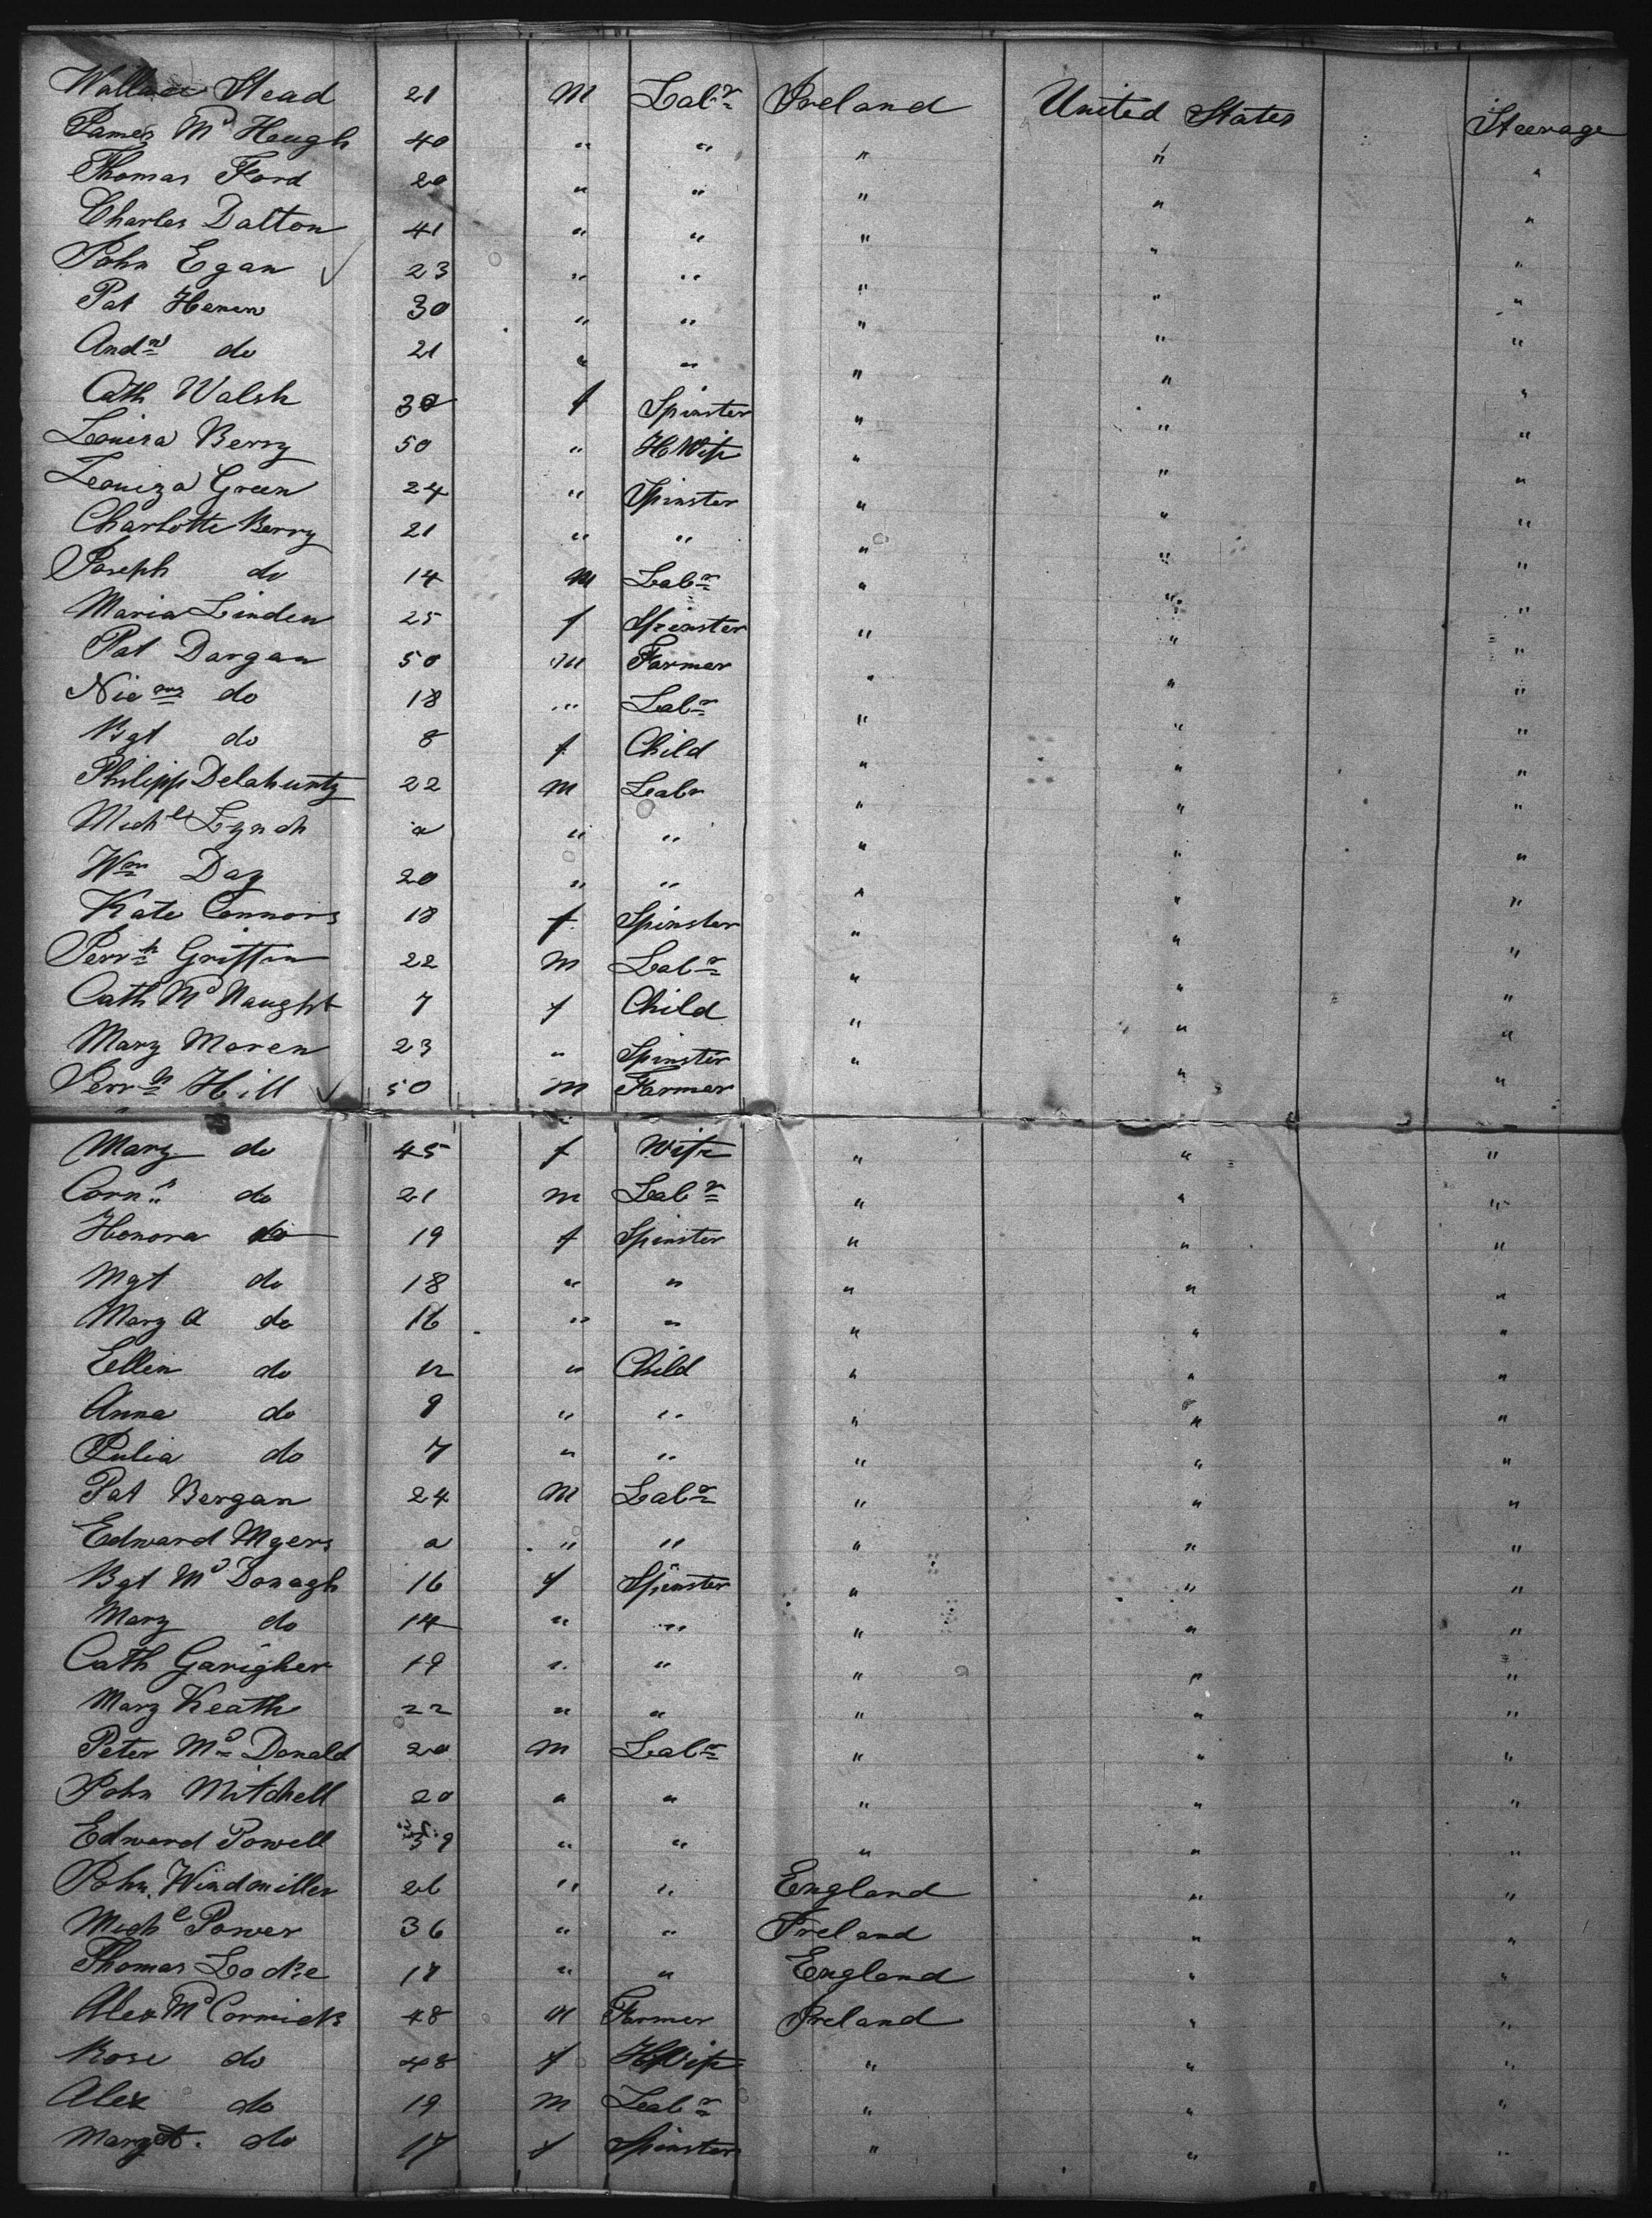 Wallace Head 21 M Labr Ireland United States Steerage
James McHeugh 40 " " " " "
Thomas Ford 20 " " " " "
Charles Dalton 41 " " " " "
John Egan 23 " " " " "
Pat Heren 30 " " " " "
Andw do 21 " " " " "
Cath Walsh 30 f Spinster " " "
Louisa Berry 50 " HWife " " "
Leouiza Green 24 " Spinster " " "
Charlotte Berry 21 " " " " "
Joseph do 14 M Labr " " "
Maria Linden 25 f Spinster " " "
Pat Dargan 50 M Farmer " " "
do 18 " Labr " " "
Bgt do 8 f Child " " "
Philipp Delahunty 22 M Labr " " "
Michl Lynch a " " " " "
Wm Day 20 " " " " "
Kate Connors 18 f Spinster " " "
Griffin 22 M Labr " " "
Cath McNaught 7 f Child " " "
Mary Maren 23 " Spinster " " "
Hill 50 M Farmer " " "
Mary do 45 f Wife " " "
Corns do 21 m Labr " " "
Honora do 19 f Spinster " " "
Mgt do 18 " " " " "
Mary A do 16 " " " " "
Ellen do 12 " Child " " "
Anna do 9 " " " " "
Julia do 7 " " " " "
Pat Bergan 24 M Labr " " "
Edward Myers a " " " " "
Bgt McDonagh 16 f Spinster " " "
Mary do 14 " " " " "
Cath Garigher 19 " " " " "
Mary Keath 22 " " " " "
Peter McDonald 20 M Labr " " "
John Mitchell 20 " " " " "
Edward Powell 39 " " " " "
John Windmiller 26 " " England " "
Michl Power 36 " " Ireland " "
Thomas Locke 17 " " England " "
Alex McCormick 48 M Farmer Ireland " "
Rose do 48 f HWife " " "
Alex do 19 M Labr " " "
Margt. do 17 f Spinster " " "